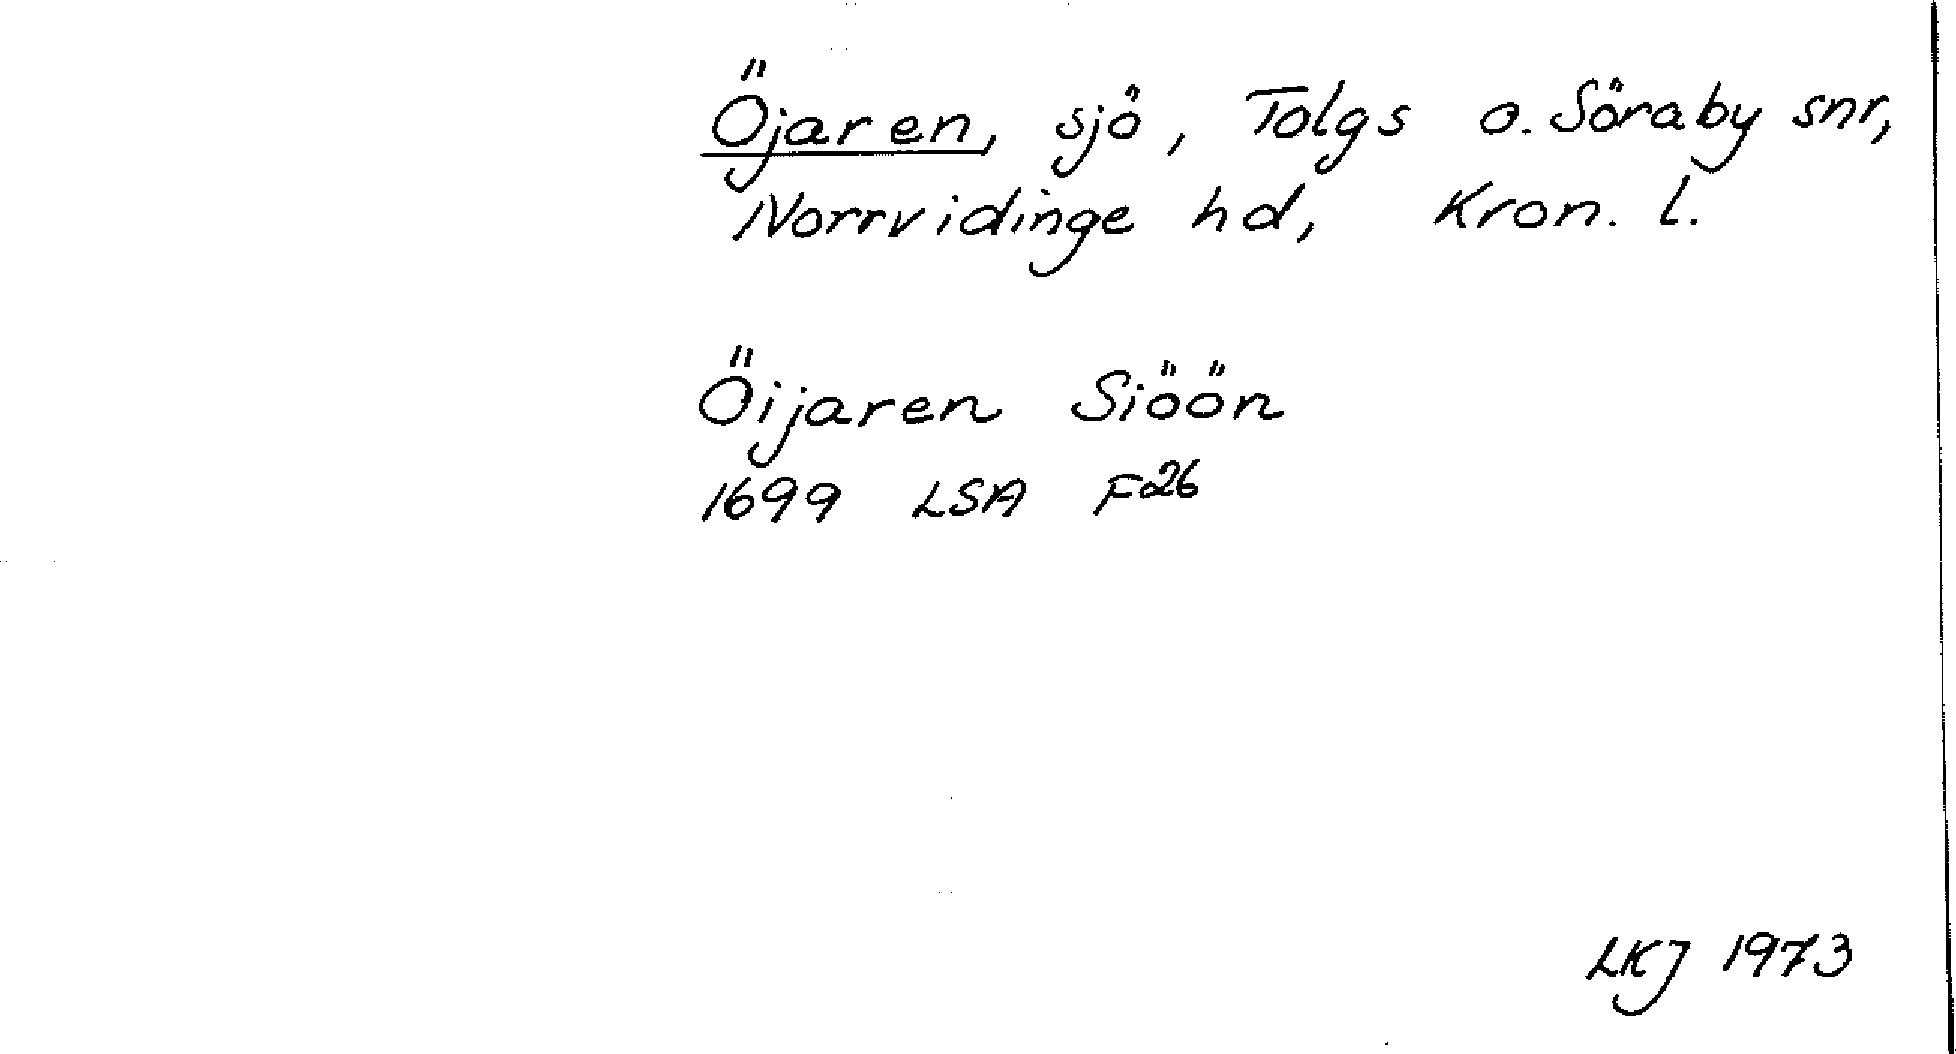 Öjaren, sjö, Tolgs o. Söraby snr,
Norrvidinge hd, Kron. l.
Öijaren Siöön
1699 LSA F26
LKJ 1973